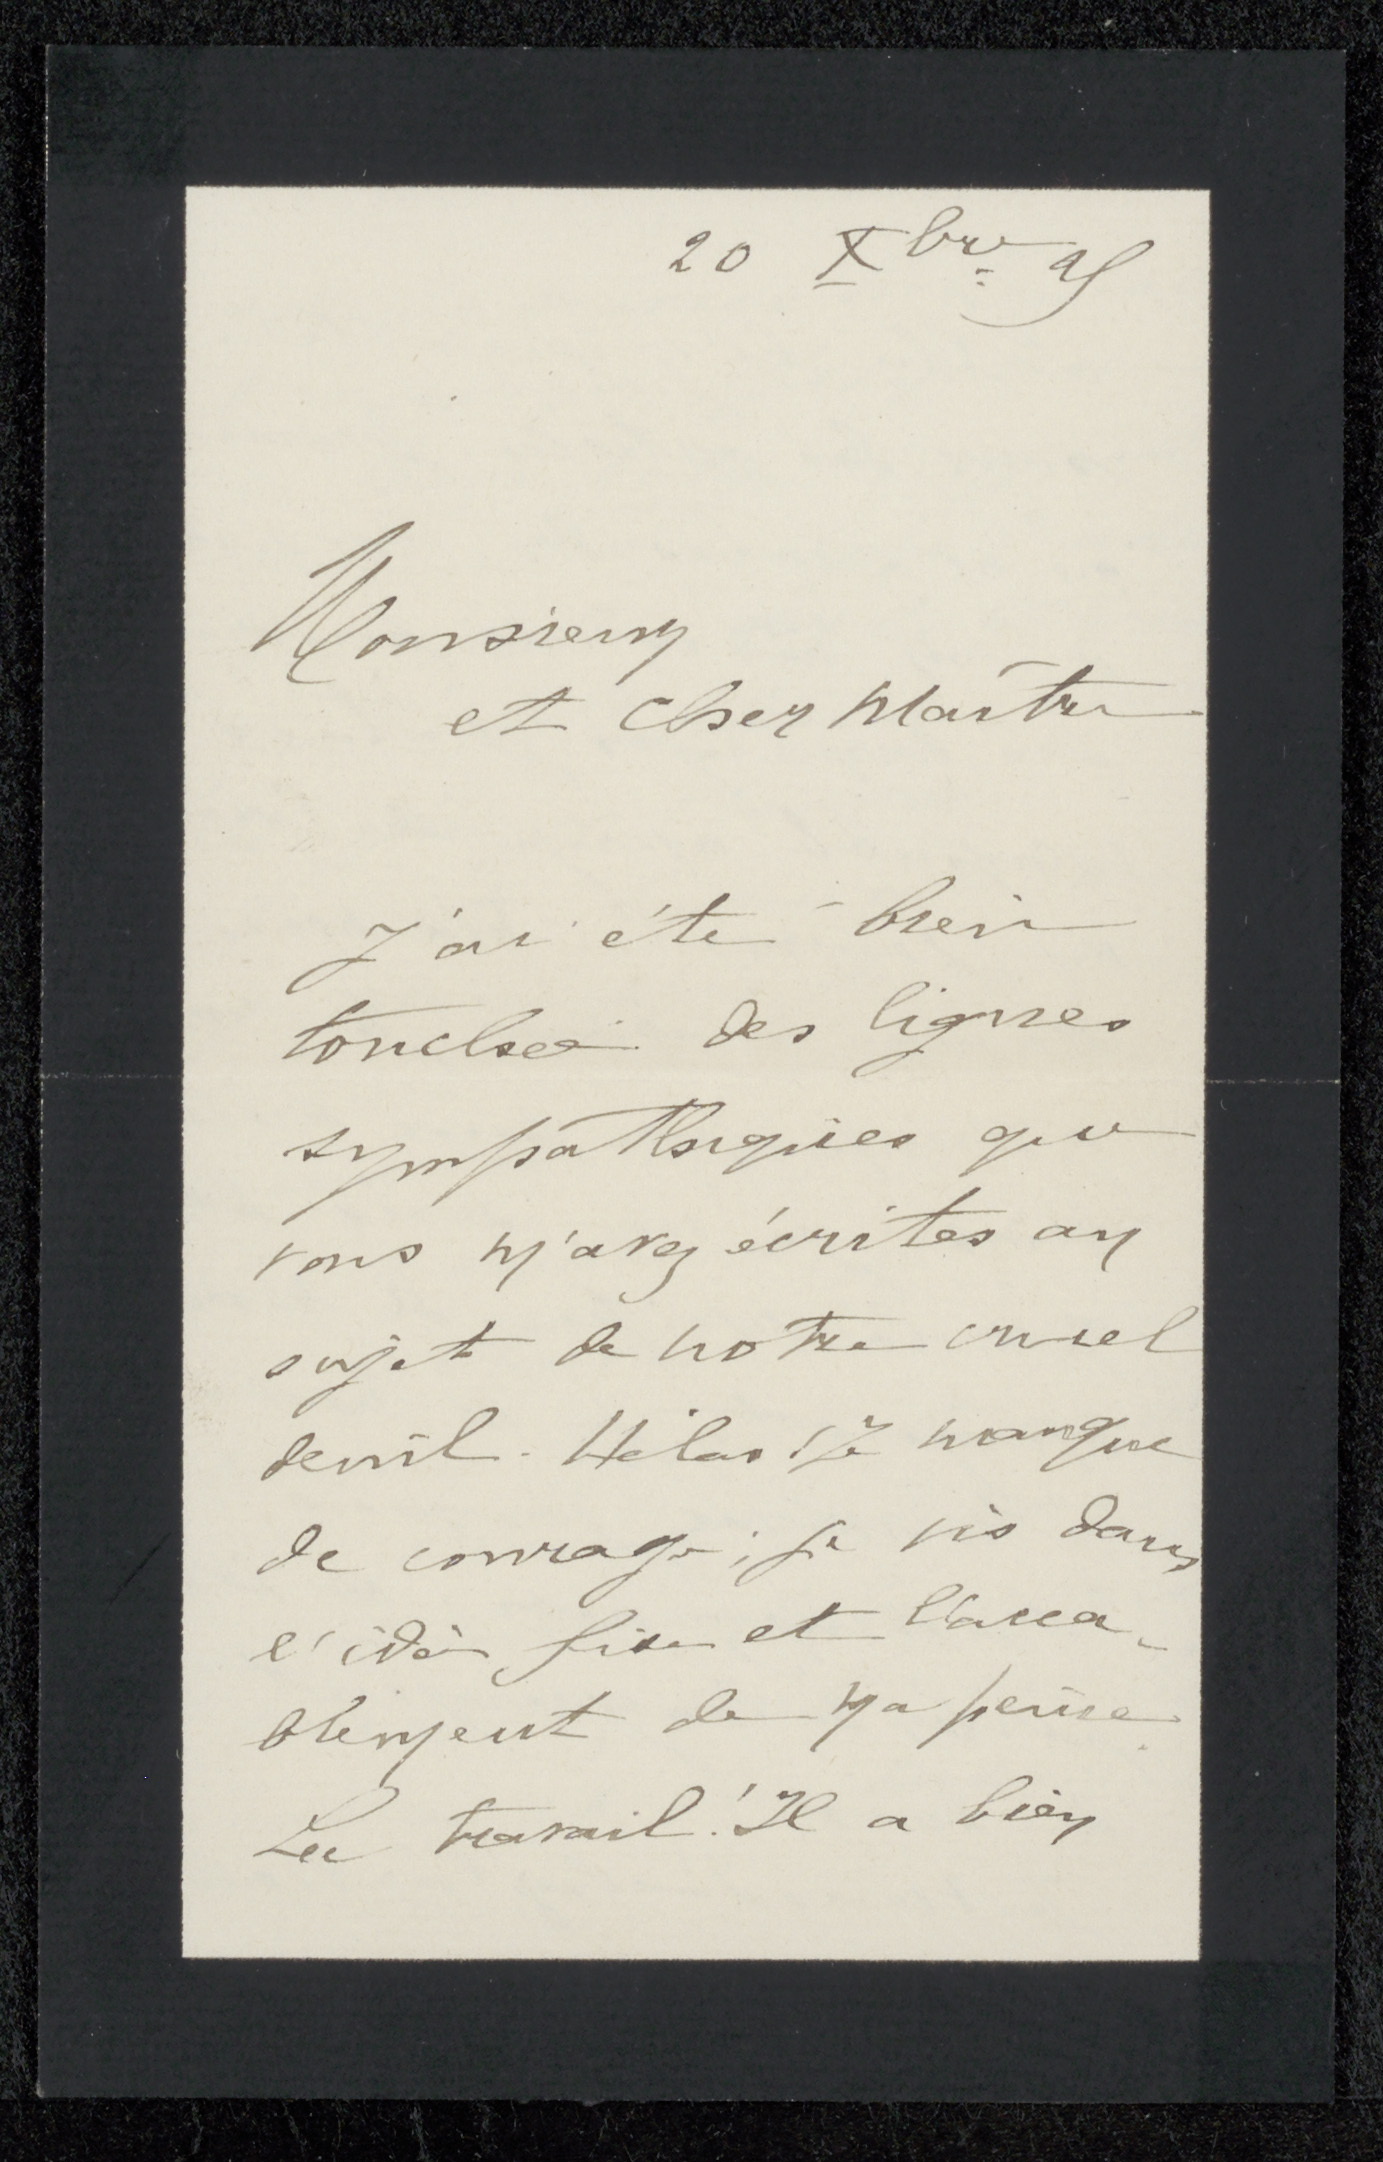 20 Xbre 95
Monsieur
et cher Maître
J'ai été bien
touchée des lignes
sympathiques que
vous m'avez écrites au
sujet de notre cruel
deuil. Hélas ! Je manque
de courage ; je vis dans
l'idée fixe et l'acca-
blement de ma peine.
Le travail ! Il a bien